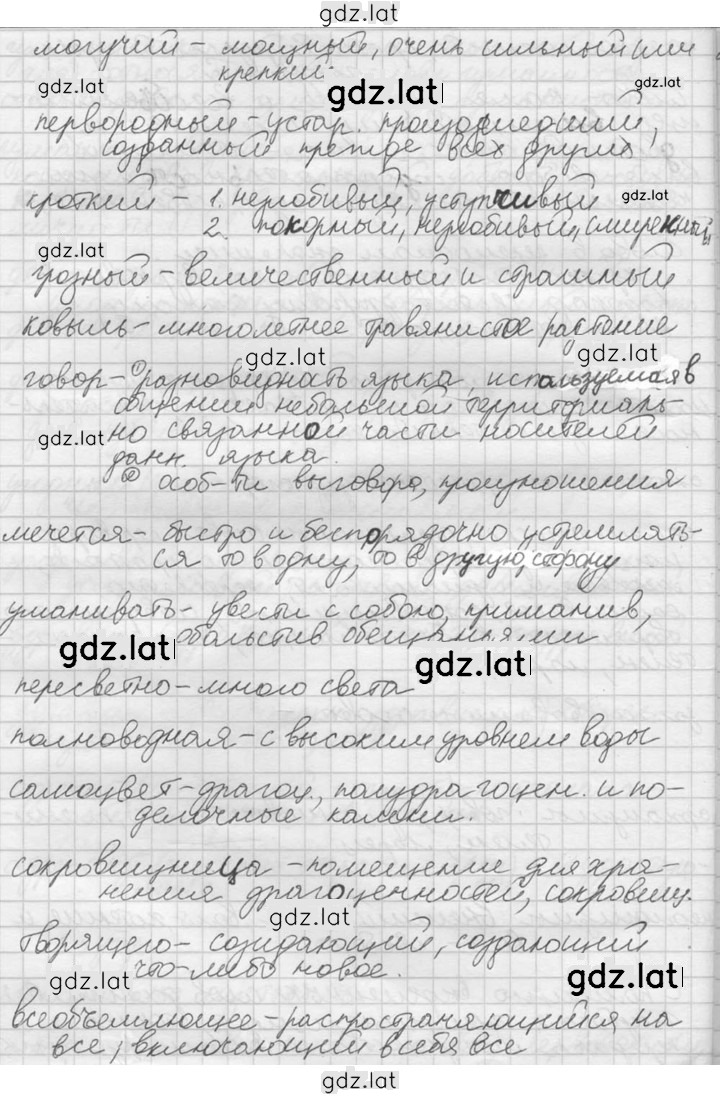 gdz.lat
могучий – мощный, очень сильный или
крепкий.
gdz.lat
gdz.lat
gdz.lat
первородный – устар. произошедший,
созданный прежде всех других
кроткий – 1. незлобивый, уступчивый
gdz.lat
2. покорный, незлобивый, смиренный
gdz.lat
грозный – величественный и страшный
ковыль – многолетнее травянистое растение
gdz.lat
gdz.lat
говор – ① разновидность языка, используемая в
общении небольшой территориаль-
но связанной части носителей
gdz.lat
данн. языка.
② особ-ти выговора, произношения
мечется – быстро и беспорядочно устремлять-
ся то в одну, то в другую сторону
уманивать – увести с собою, приманив,
обольстив обещаниями
gdz.lat
gdz.lat
пересветно – много света
полноводная – с высоким уровнем воды
самоцвет – драгоц., полудрагоцен. и по-
делочные камни.
сокровищница – помещение для хра-
нения драгоценностей, сокровищ.
gdz.lat
творящего – созидающий, создающий
что-либо новое.
gdz.lat
gdz.lat
всеобъемлющее – распространяющийся на
все, включающий в себя все
gdz.lat